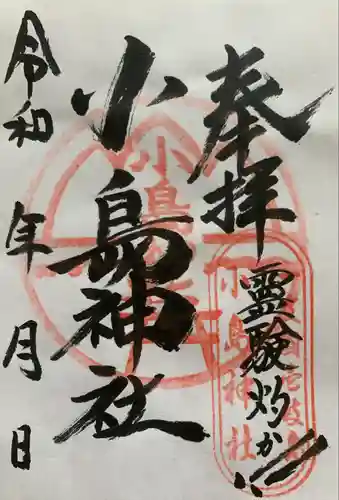 奉拝
霊験灼か
小島神社
令和 年 月 日
小島神社
小島